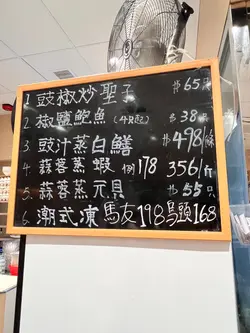 1 豉椒炒聖子 升65
2 椒鹽鮑魚(4隻起) 38
3 豉汁蒸白鱔 升498/條
4. 蒜蓉蒸蝦 例178 356/斤
5. 蒜蓉蒸元貝 55只
6. 潮式凍馬友198馬頭168